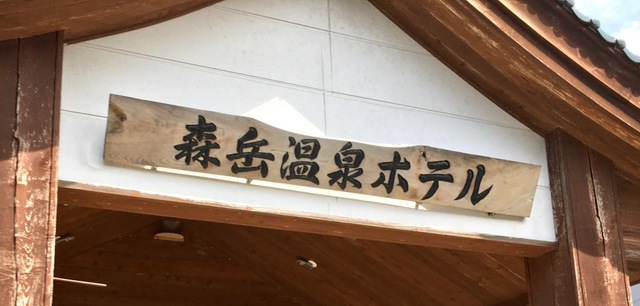 森岳温泉ホテル